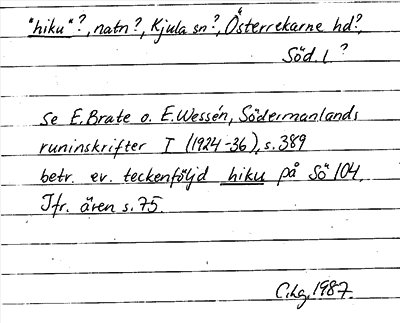 "hiku"?, natn?, Kjula sn?, Österrekarne hd?,
Söd. l.?
Se E. Brate o. E. Wessén, Södermanlands
runinskrifter I (1924-36), s. 389
betr. ev. teckenföljd hiku på Sö 104.
Jfr. även s. 75.
C.Lg. 1987.